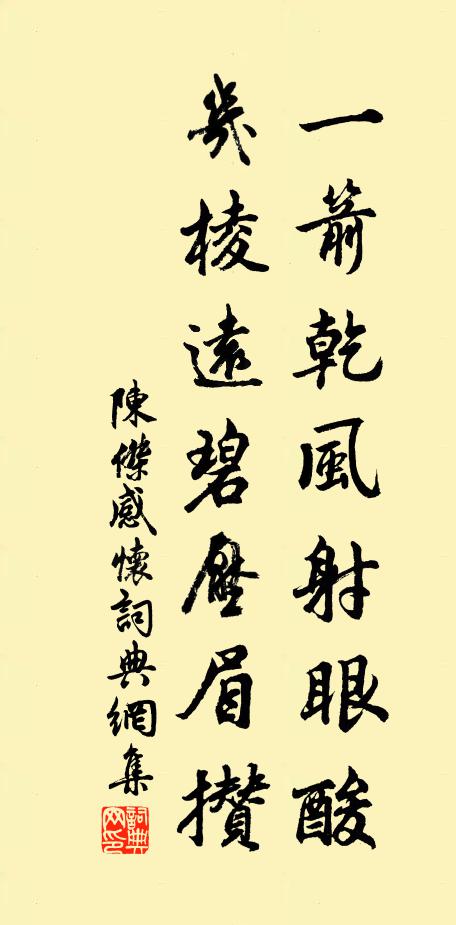 一箭乾風射眼酸
幾棱遠碧壓眉攢
陳傑感懷詞典網集
詞典網印